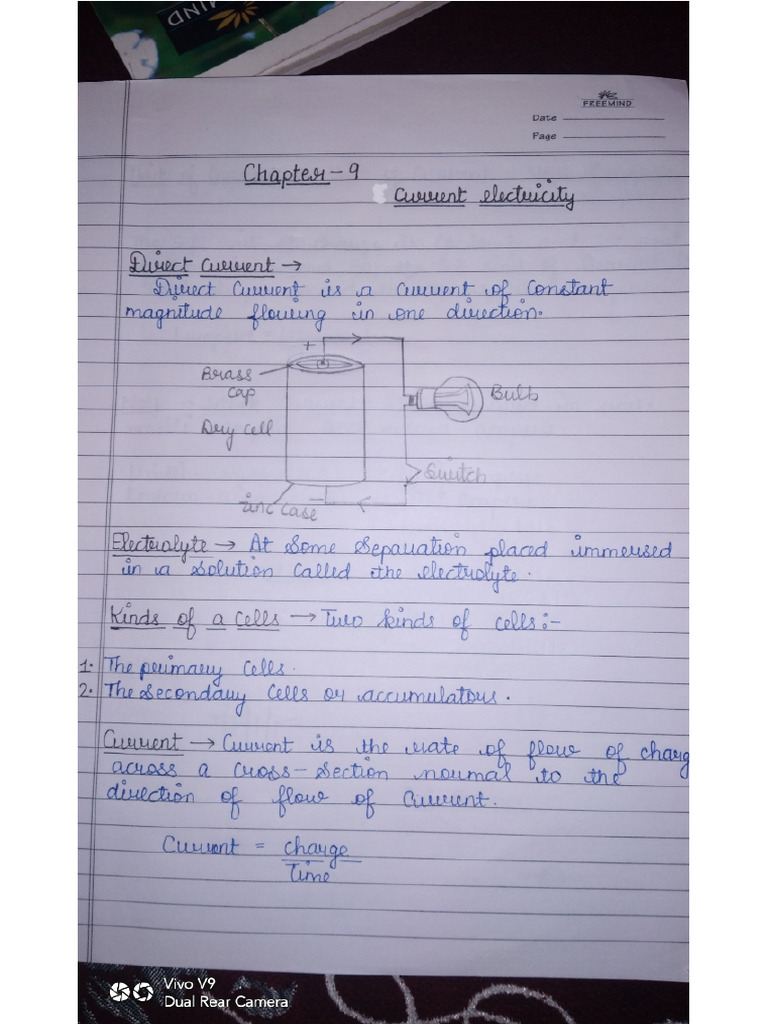 MIND
FREEMIND
Date
Page
Chapter - 9
Current electricity
Direct Current →
Direct Current is a current of constant
magnitude flowing in one direction.
+
Brass
cap
Bulb
Dry cell
Switch
–
zinc case
Electrolyte → At some separation placed immersed
in a solution called the electrolyte.
Kinds of a cells → Two kinds of cells:-
1. The primary cells.
2. The secondary cells or accumulators.
Current → Current is the rate of flow of charg
across a cross-section normal to the
direction of flow of current.
Current = charge
Time
Vivo V9
Dual Rear Camera